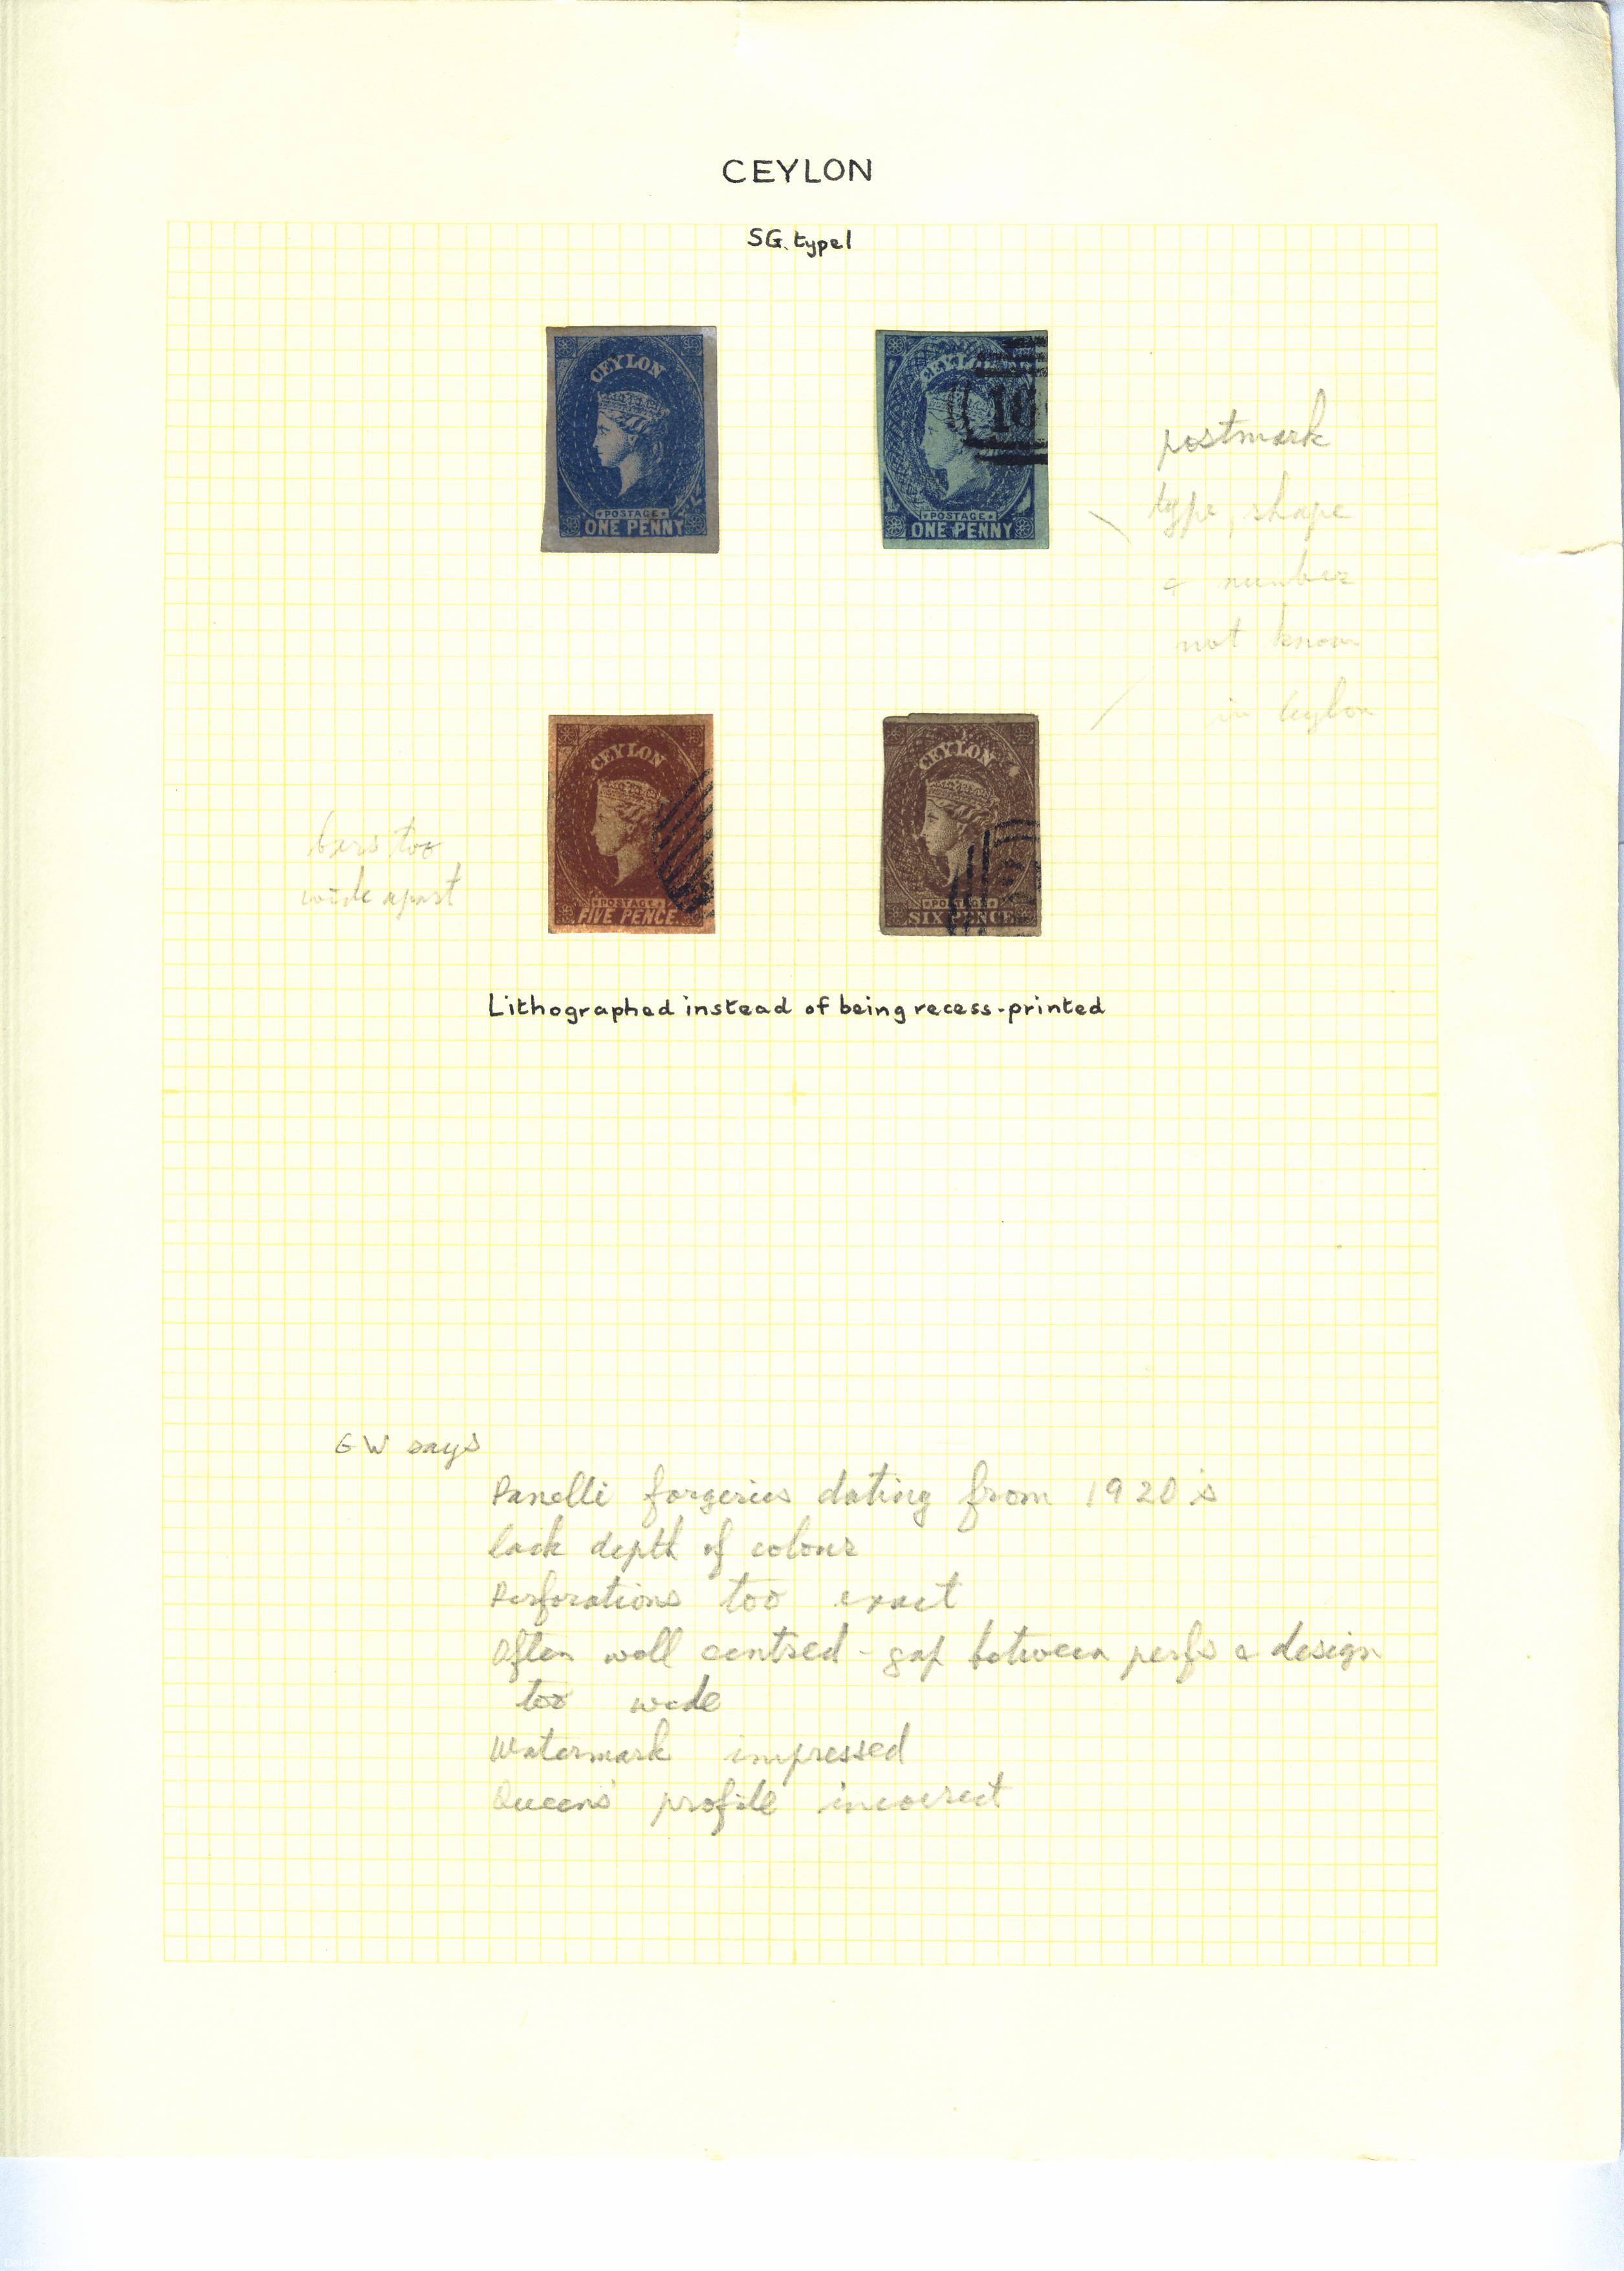 CEYLON
SG. type 1
CEYLON
POSTAGE
ONE PENNY
CEYL
10
POSTAGE
ONE PENNY
postmark
type, shape
& number
not known
in Ceylon
CEYLON
POSTAGE
FIVE PENCE
CEYLON
POSTAGE
SIX PENCE
bars too
wide apart
Lithographed instead of being recess-printed
GW says
Panelli forgeries dating from 1920's
lack depth of colour
Perforations too exact
Often well centred - gap between perfs & design
too wide
Watermark impressed
Queens' profile incorrect